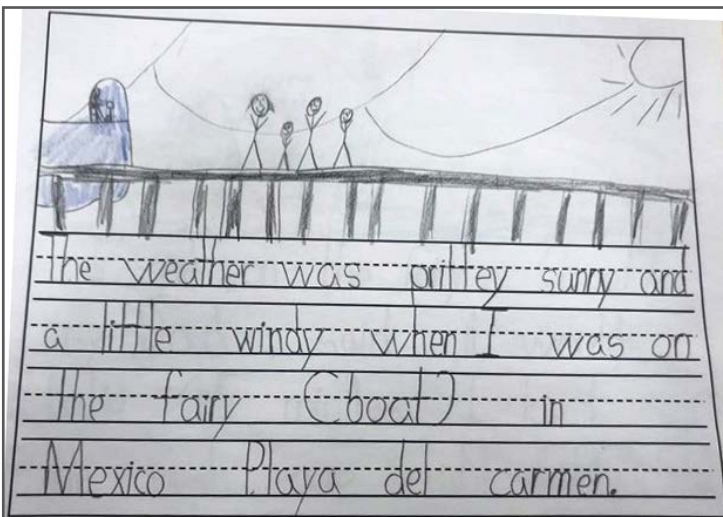 The weather was prittey sunny and
a little windy when I was on
the fairy (boat) in
Mexico Playa del carmen.